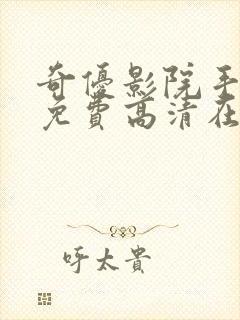 奇優影院手
免費高清在
呼太貴